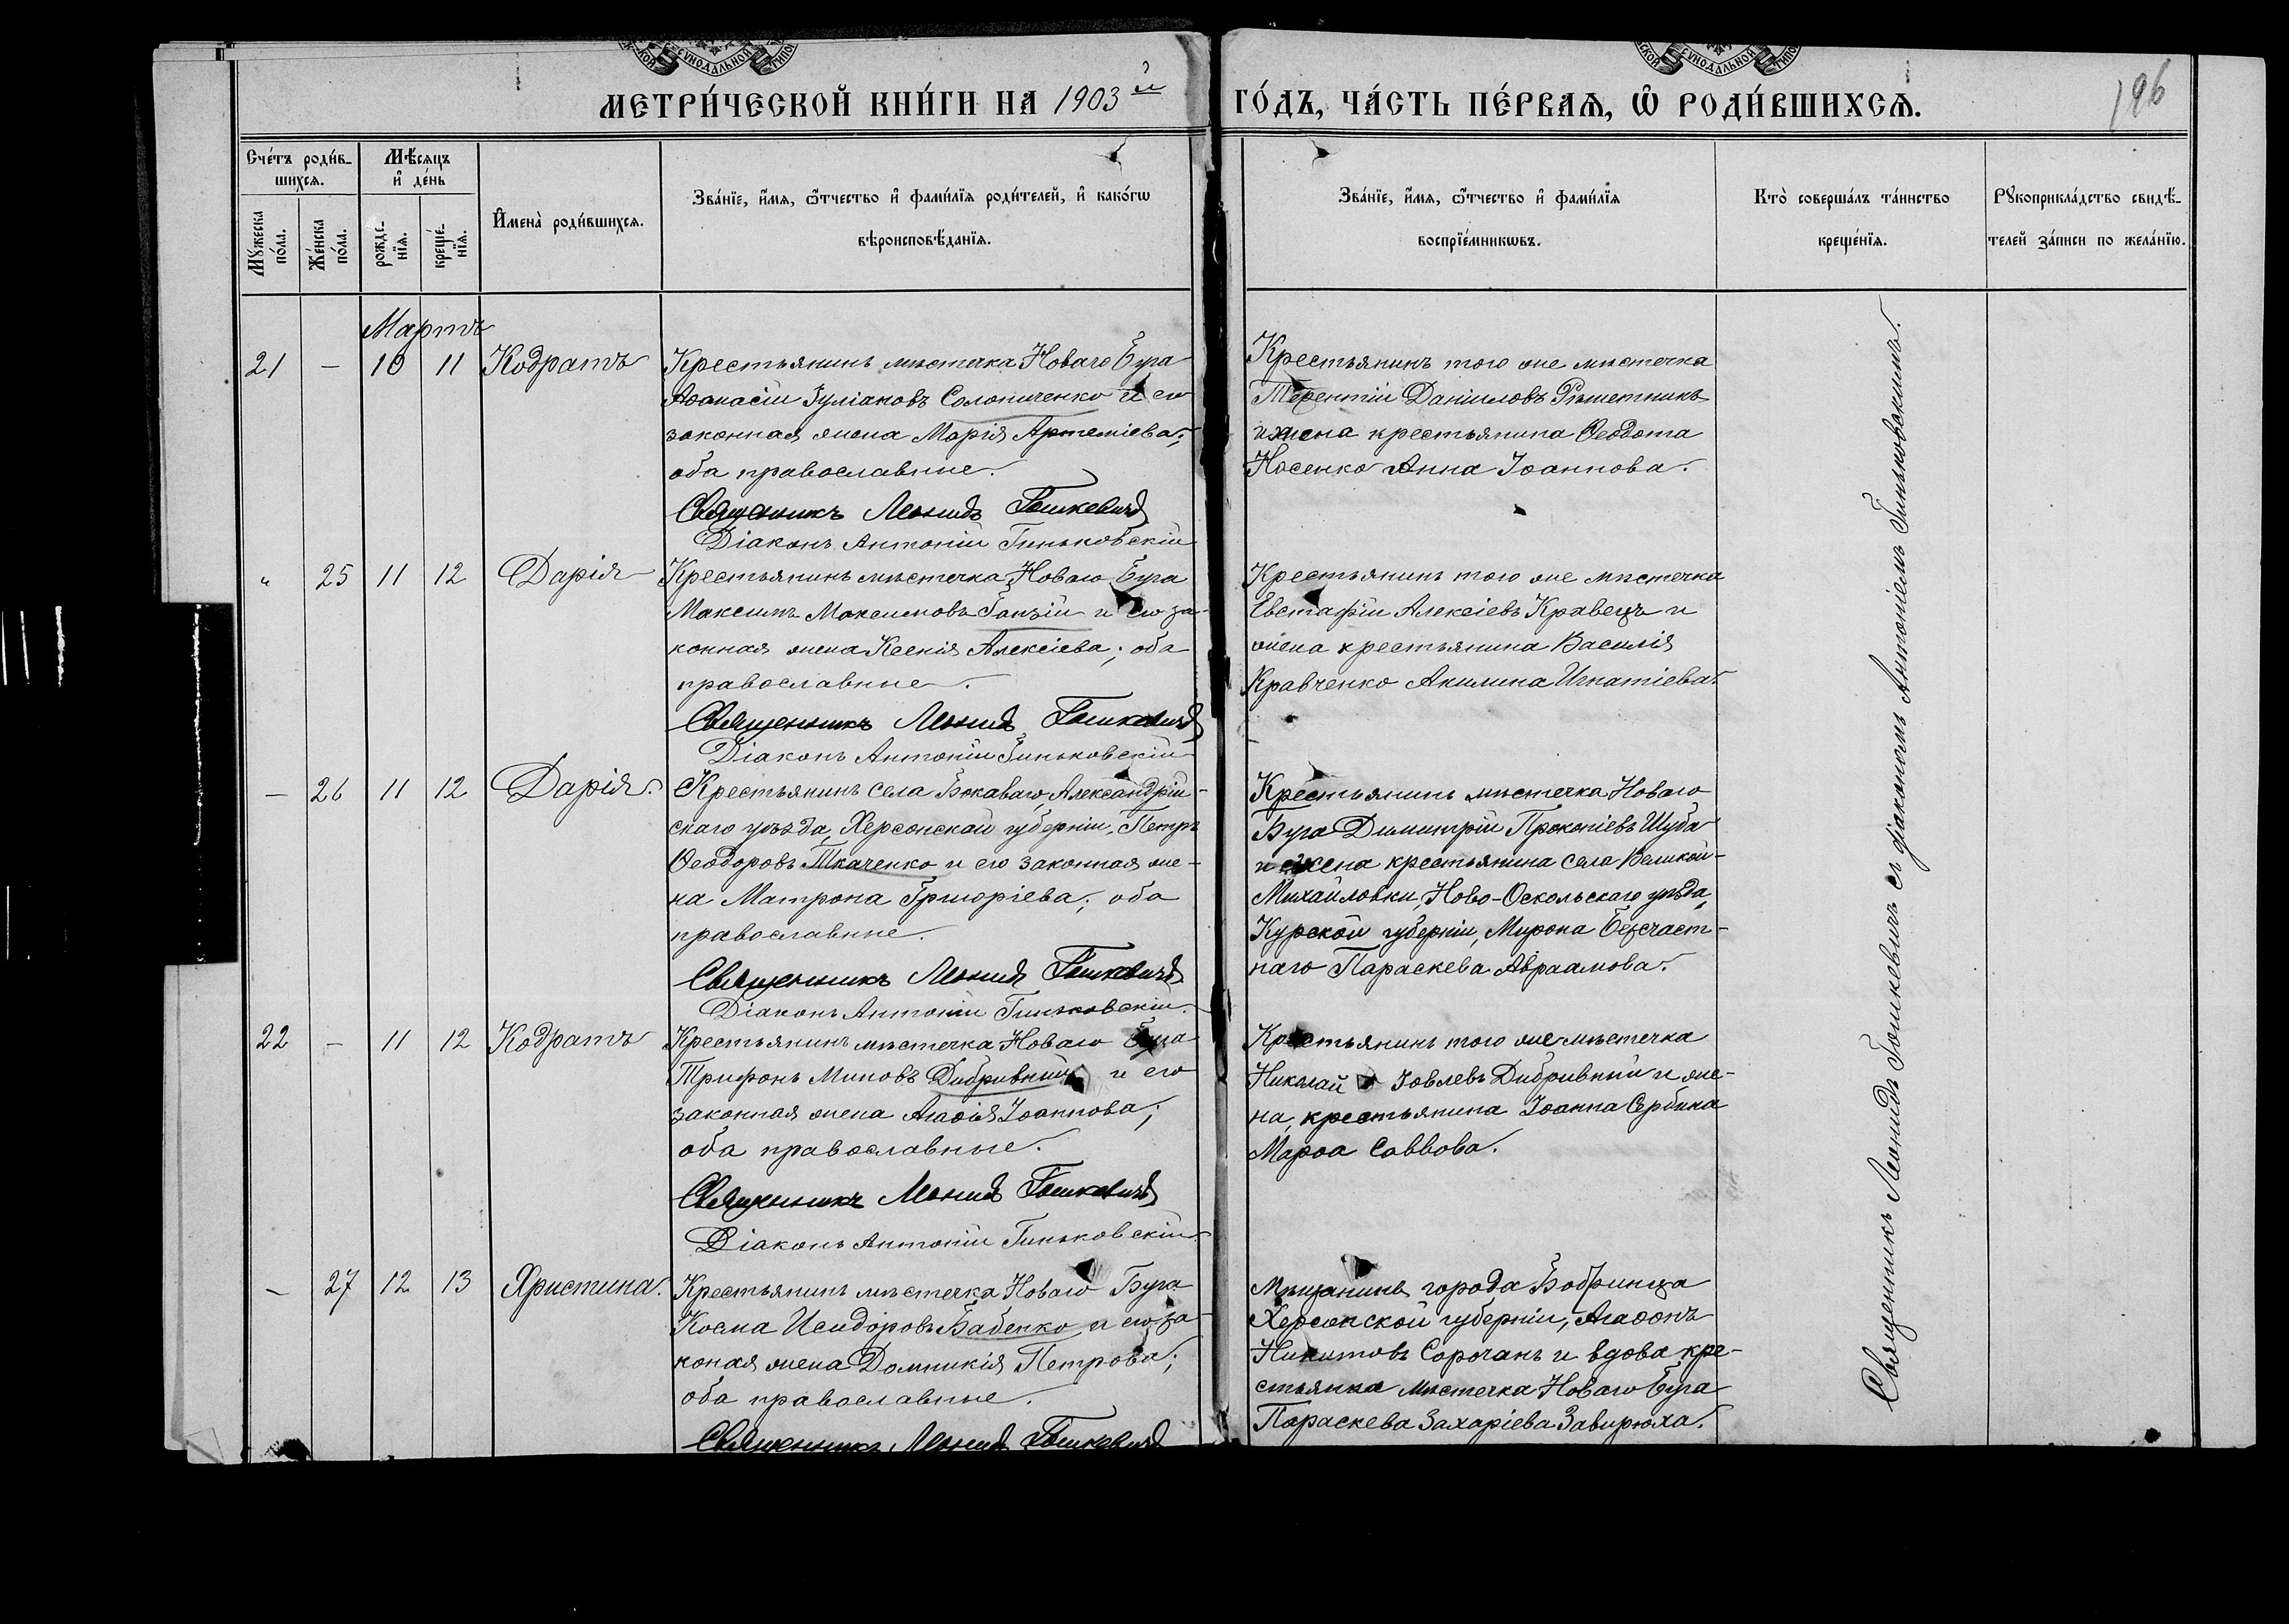 МЕТРИ́ЧЕСКОЙ КНИ́ГИ НА 1903й ГО́ДЪ, ЧА́СТЬ ПЕ́РВАѦ, Ѡ҆ РОДИ́ВШИХСѦ.
196
Сче́тъ роди́в-
шихсѧ.
Мꙋжеска по́ла.
Же́нска по́ла.
Мѣ́сѧцъ
и҆ де́нь
рожде-нїѧ.
креще́-нїѧ.
И҆мена̀ роди́вшихсѧ.
Зва́нїе, и҆́мѧ, ѻ҆́тчество и҆ фами́лїѧ роди́телей, и҆ како́гѡ
вѣроисповѣ́данїѧ.
Зва́нїе, и҆́мѧ, ѻ҆́тчество и҆ фами́лїѧ
воспрїе́мникѡвъ.
Кто̀ соверша́лъ та́инство
креще́нїѧ.
Рꙋкоприкла́дство свидѣ́-
телей за́писи по жела́нїю.
Мартъ
21 – 10 11 Кодратъ
Крестьянинъ мѣстечка Новаго Буга
Аѳанасій Іуліановъ Солопиченко и его
законная жена Марія Артеміева;
оба православные.
Священникъ Леонидъ Гошкевичъ
Діаконъ Антоній Гиньковскій
Крестьянинъ того же мѣстечка
Терентій Даніиловъ Рѣшетникъ
и жена крестьянина Ѳеодота
Носенко Анна Іоаннова.
„ 25 11 12 Дарія
Крестьянинъ мѣстечка Новаго Буга
Максимъ Максимовъ Ганзій и его за-
конная жена Ксенія Алексіева; оба
православные.
Священникъ Леонидъ Гошкевичъ
Діаконъ Антоній Гиньковскій
Крестьянинъ того же мѣстечка
Евстафій Алексіевъ Кравецъ и
жена крестьянина Василія
Кравченко Акилина Игнатіева.
– 26 11 12 Дарія.
Крестьянинъ села Бокаваго, Александрій-
скаго уѣзда, Херсонской губерніи, Петръ
Ѳеодоровъ Ткаченко и его законная же-
на Матрона Григоріева; оба
православные.
Священникъ Леонидъ Гошкевичъ
Діаконъ Антоній Гиньковскій.
Крестьянинъ мѣстечка Новаго
Буга Димитрій Прокопіевъ Шуба
и жена крестьянина села Великой-
Михайловки, Ново-Оскольскаго уѣзда,
Курской губерніи, Мирона Безсчаст-
наго Параскева Авраамова.
22 – 11 12 Кодратъ
Крестьянинъ мѣстечка Новаго Буга
Трифонъ Миновъ Дибривный и его
законная жена Агаѳія Іоаннова;
оба православные.
Священникъ Леонидъ Гошкевичъ
Діаконъ Антоній Гиньковскій
Крестьянинъ того же мѣстечка
Николай Іовлевъ Дибривный и же-
на, крестьянина Іоанна Сербина
Марѳа Саввова.
– 27 12 13 Христина.
Крестьянинъ мѣстечка Новаго Буга
Косма Исидоровъ Бабенко и его за-
коная жена Домникія Петрова;
оба православные.
Священникъ Леонидъ Гошкевичъ
Мѣщанинъ города Бобринца
Херсонской губерніи, Агаѳонъ
Никитовъ Сорочанъ и вдова кре-
стьянка мѣстечка Новаго Буга
Параскева Захаріева Завирюха.
Священникъ Леонидъ Гошкевичъ съ діакономъ Антоніемъ Гиньковскимъ.